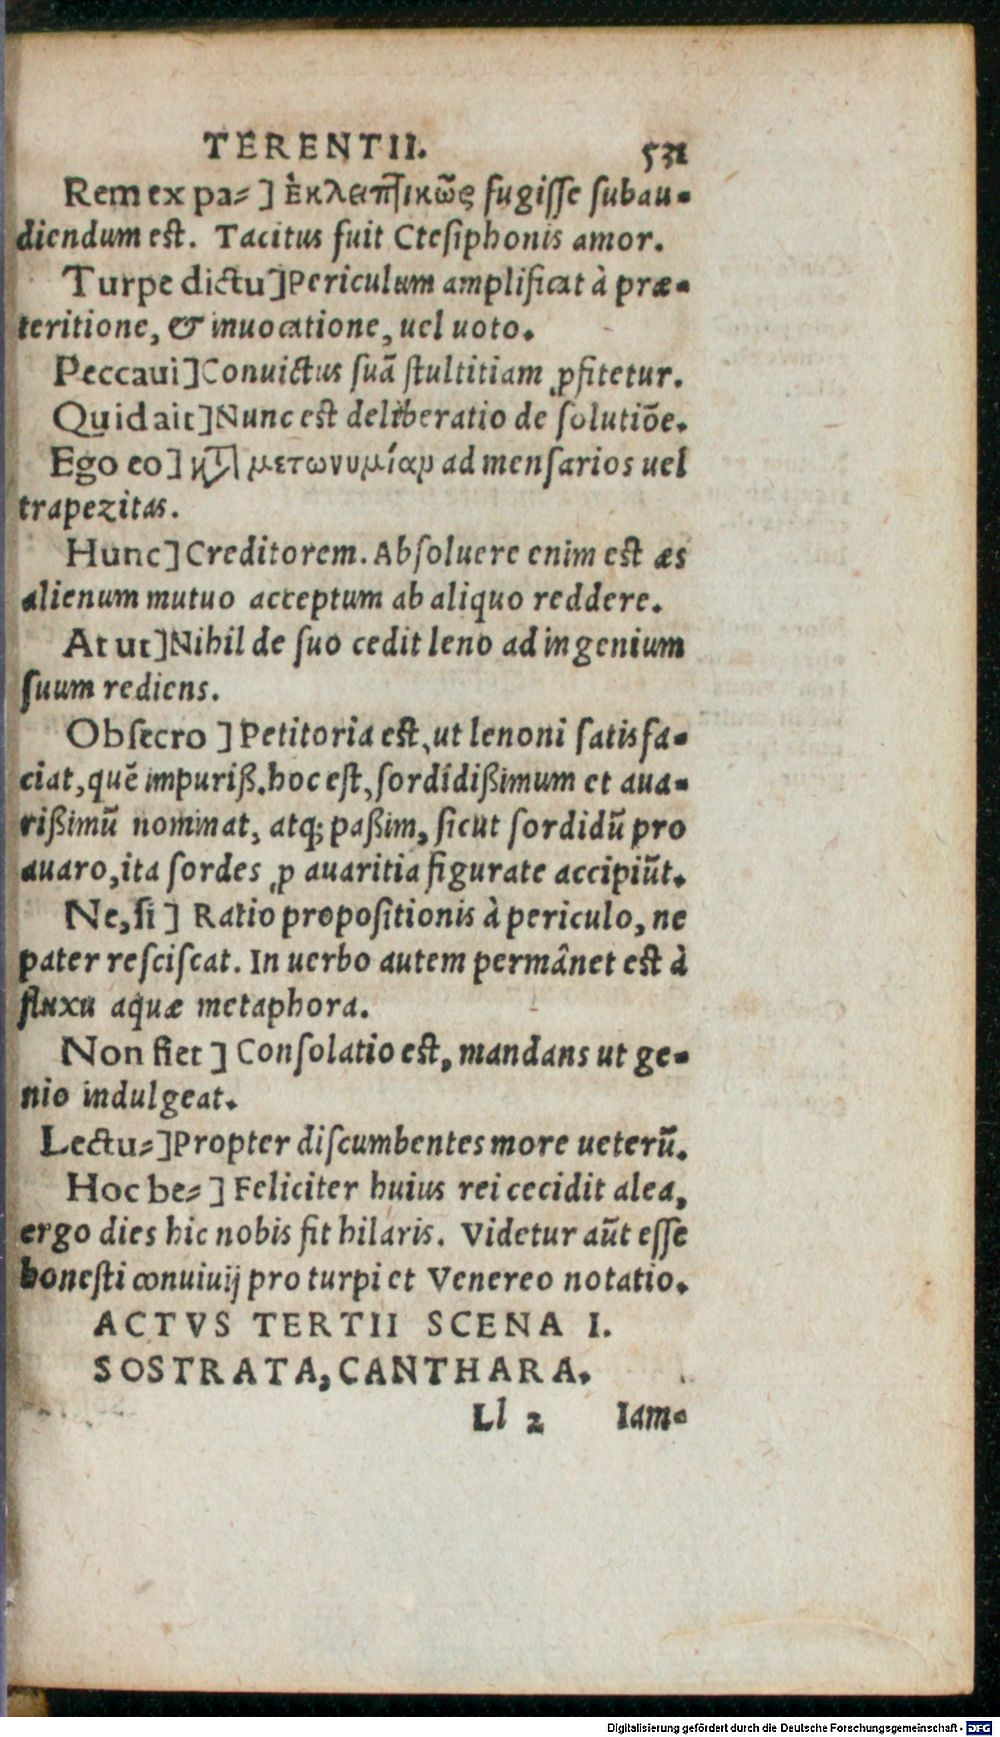 TERENTII. 531
Rem ex pa-] Ἐκλειπτικῶς fugisse subau-
diendum est. Tacitus fuit Ctesiphonis amor.
Turpe dictu] Periculum amplificat à præ-
teritione, & inuocatione, uel uoto.
Peccaui] Conuictus suã stultitiam ꝓfitetur.
Quid ait] Nunc est deliberatio de solutiõe.
Ego eo] κατὰ μετωνυμίαμ ad mensarios uel
trapezitas.
Hunc] Creditorem. Absoluere enim est æs
alienum mutuo acceptum ab aliquo reddere.
At ut] Nihil de suo cedit leno ad ingenium
suum rediens.
Obsecro ] Petitoria est, ut lenoni satisfa-
ciat, quẽ impuriß. hoc est, sordidißimum et aua-
rißimũ nominat, atq; paßim, sicut sordidũ pro
auaro, ita sordes ꝓ auaritia figurate accipiũt.
Ne, si ] Ratio propositionis à periculo, ne
pater resciscat. In uerbo autem permânet est à
fluxu aquæ metaphora.
Non fiet ] Consolatio est, mandans ut ge-
nio indulgeat.
Lectu-] Propter discumbentes more ueterũ.
Hoc be- ] Feliciter huius rei cecidit alea,
ergo dies hic nobis fit hilaris. Videtur aũt esse
honesti conuiuij pro turpi et Venereo notatio.
ACTVS TERTII SCENA I.
SOSTRATA, CANTHARA.
Ll 2 Iam-
Digitalisierung gefördert durch die Deutsche Forschungsgemeinschaft - DFG